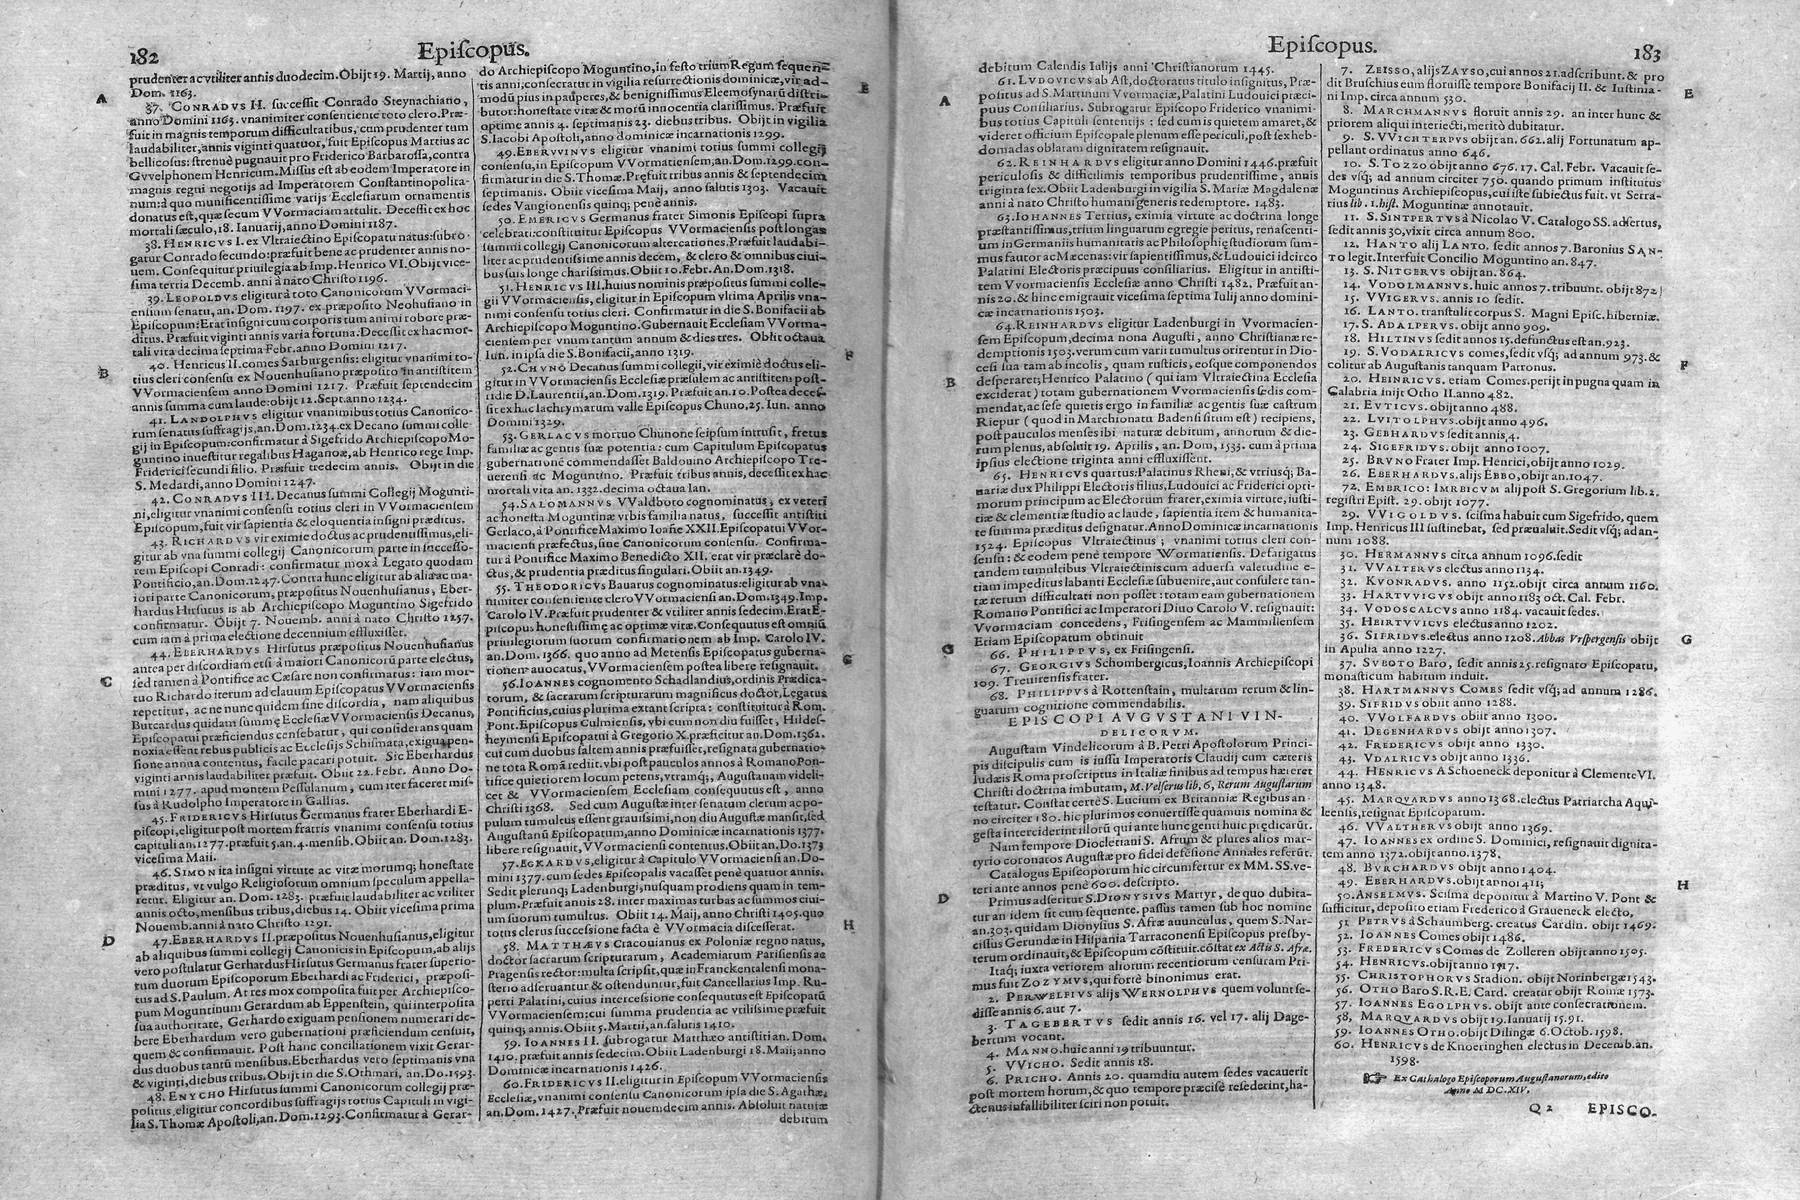 182
Epiſcopus.
prudenter ac vtiliter annis duodecim. Obijt 19. Martij, anno
Dom. 1163.
37. CONRADVS II. ſucceſſit Conrado Steynachiano,
anno Domini 1163. vnanimiter conſentiente toto clero. Præ-
fuit in magnis temporum difficultatibus, cum prudenter tum
laudabiliter, annis viginti quatuor, fuit Epiſcopus Martius ac
bellicoſus: ſtrenuè pugnauit pro Friderico Barbaroſſa, contra
Gvvelphonem Henricum. Miſſus eſt ab eodem Imperatore in
magnis regni negotijs ad Imperatorem Conſtantinopolita-
num: à quo munificentiſſime varijs Eccleſiarum ornamentis
donatus eſt, quæ ſecum VVormaciam attulit. Deceſſit ex hoc
mortali ſæculo, 18. Ianuarij, anno Domini 1187.
38. HENRICVS I. ex Vltraiectino Epiſcopatu natus: ſubro-
gatur Conrado ſecundo: præfuit bene ac prudenter annis no-
uem. Conſequitur priuilegia ab Imp. Henrico VI. Obijt vice-
ſima tertia Decemb. anni à nato Chriſto 1196.
39. LEOPOLDVS eligitur à toto Canonicorum VVormaci-
enſium ſenatu, an. Dom. 1197. ex præpoſito Neohuſiano in
Epiſcopum: Erat inſigni cum corporis tum animi robore præ-
ditus. Præfuit viginti annis varia fortuna. Deceſſit ex hac mor-
tali vita decima ſeptima Febr. anno Domini 1217.
40. Henricus II. comes Sarburgenſis: eligitur vnanimi to-
tius cleri conſenſu ex Nouenhuſiano præpoſito in antiſtitem
VVormacienſem anno Domini 1217. Præfuit ſeptendecim
annis ſumma cum laude: obijt 12. Sept. anno 1234.
41. LANDOLPHVS eligitur vnanimibus totius Canonico-
rum ſenatus ſuffragijs, an. Dom. 1234. ex Decano ſummi colle-
gij in Epiſcopum: confirmatur à Sigefrido Archiepiſcopo Mo-
guntino inueſtitur regalibus Haganoæ, ab Henrico rege Imp.
Friderici ſecundi filio. Præfuit tredecim annis. Obijt in die
S. Medardi, anno Domini 1247.
42. CONRADVS III. Decanus ſummi Collegij Mogunti-
ni, eligitur vnanimi conſenſu totius cleri in VVormacienſem
Epiſcopum, fuit vir ſapientia & eloquentia inſigni præditus.
43. RICHARDVS vir eximie doctus ac prudentiſſimus, eli-
gitur ab vna ſummi collegij Canonicorum parte in ſucceſſo-
rem Epiſcopi Conradi: confirmatur mox à Legato quodam
Pontificio, an. Dom. 1247. Contra hunc eligitur ab alia ac ma-
iori parte Canonicorum, præpoſitus Nouenhuſianus, Eber-
hardus Hirſutus is ab Archiepiſcopo Moguntino Sigefrido
confirmatur. Obijt 7. Nouemb. anni à nato Chriſto 1257.
cum iam à prima electione decennium effluxiſſet.
44. EBERHARDVS Hirſutus præpoſitus Nouenhuſianus
antea per diſcordiam etſi à maiori Canonicorū parte electus,
ſed tamen à Pontifice ac Cæſare non confirmatus: iam mor-
tuo Richardo iterum ad clauum Epiſcopatus VVormacienſis
repetitur, ac ne nunc quidem ſine diſcordia, nam aliquibus
Burcardus quidam ſummę Eccleſiæ VVormacienſis Decanus,
Epiſcopatui præficiendus cenſebatur, qui conſiderans quam
noxia eſſent rebus publicis ac Eccleſijs Schiſmata, exigua pen-
ſione annua contentus, facile pacari potuit. Sic Eberhardus
viginti annis laudabiliter præfuit. Obiit 22. Febr. Anno Do-
mini 1277. apud montem Peſſulanum, cum iter faceret miſ-
ſus à Rudolpho Imperatore in Gallias.
45. FRIDERICVS Hirſutus Germanus frater Eberhardi E-
piſcopi, eligitur poſt mortem fratris vnanimi conſenſu totius
capituli an. 1277. præfuit 5. an. 4. menſib. Obiit an. Dom. 1283.
viceſima Maii.
46. SIMON ita inſigni virtute ac vitæ morumq; honeſtate
præditus, vt vulgo Religioſorum omnium ſpeculum appella-
retur. Eligitur an. Dom. 1283. præfuit laudabiliter ac vtiliter
annis octo, menſibus tribus, diebus 14. Obiit viceſima prima
Nouemb. anni à nato Chriſto 1291.
47. EBERHARDVS II. præpoſitus Nouenhuſianus, eligitur
ab aliquibus ſummi collegij Canonicis in Epiſcopum, ab alijs
vero poſtulatur Gerhardus Hirſutus Germanus frater ſuperio-
rum duorum Epiſcoporum Eberhardi ac Friderici, præpoſi-
tus ad S. Paulum. At res mox compoſita fuit per Archiepiſco-
pum Moguntinum Gerardum ab Eppenſtein, qui interpoſita
ſua authoritate, Gerhardo exiguam penſionem numerari de-
bere Eberhardum vero gubernationi præficiendum cenſuit,
quem & confirmauit. Poſt hanc conciliationem vixit Gerar-
dus duobus tantū menſibus. Eberhardus vero ſeptimanis vna
& viginti, diebus tribus. Obijt in die S. Othmari, an. Do. 1593.
48. ENYCHO Hirſutus ſummi Canonicorum collegij præ-
poſitus, eligitur concordibus ſuffragijs totius Capituli in vigi-
lia S. Thomæ Apoſtoli, an. Dom. 1293. Confirmatur à Gerar-
A
B
C
D
do Archiepiſcopo Moguntino, in feſto trium Regum ſequen-
tis anni; conſecratur in vigilia reſurrectionis dominicæ, vir ad-
modū pius in pauperes, & benigniſſimus Eleemoſynarū diſtri-
butor: honeſtate vitæ & morū innocentia clariſſimus. Præfuit
optime annis 4. ſeptimanis 23. diebus tribus. Obijt in vigilia
S. Iacobi Apoſtoli, anno dominicæ incarnationis 1299.
49. EBERVVINVS eligitur vnanimi totius ſummi collegij
conſenſu, in Epiſcopum VVormatienſem, an. Dom. 1299. con-
firmatur in die S. Thomæ. Præfuit tribus annis & ſeptendecim
ſeptimanis. Obiit viceſima Maij, anno ſalutis 1303. Vacauit
ſedes Vangionenſis quinq; penè annis.
50. EMERICVS Germanus frater Simonis Epiſcopi ſupra
celebrati: conſtituitur Epiſcopus VVormacienſis poſt longas
ſummi collegij Canonicorum altercationes. Præfuit laudabi-
liter ac prudentiſſime annis decem, & clero & omnibus ciui-
bus ſuis longe chariſſimus. Obiit 10. Febr. An. Dom. 1318.
51. HENRICVS III. huius nominis præpoſitus ſummi colle-
gii VVormacienſis, eligitur in Epiſcopum vltima Aprilis vna-
nimi conſenſu totius cleri. Confirmatur in die S. Bonifacii ab
Archiepiſcopo Moguntino. Gubernauit Eccleſiam VVorma-
cienſem per vnum tantum annum & dies tres. Obiit octaua
Iun. in ipſa die S. Bonifacii, anno 1319.
52. CHVNO Decanus ſummi collegii, vir eximiè doctus eli-
gitur in VVormacienſis Eccleſiæ præſulem ac antiſtitem poſt-
ridie D. Laurentii, an. Dom. 1319. Præfuit an. 10. Poſtea deceſ-
ſit ex hac lachrymarum valle Epiſcopus Chuno, 25. Iun. anno
Domini 1329.
53. GERLACVS mortuo Chunone ſeipſum intruſit, fretus
familiæ ac gentis ſuæ potentia: cum Capitulum Epiſcopatus
gubernationē commendaſſet Baldouino Archiepiſcopo Tre-
uerenſi ac Moguntino. Præfuit tribus annis, deceſſit ex hac
mortali vita an. 1332. decima octaua Ian.
54. SALOMANNVS VValdboto cognominatus, ex veteri
ac honeſta Moguntinæ vrbis familia natus, ſucceſſit antiſtiti
Gerlaco, à Pontifice Maximo Ioanne XXII. Epiſcopatui VVor-
macienſi præfectus, ſine Canonicorum conſenſu. Confirma-
tur à Pontifice Maximo Benedicto XII. erat vir præclarè do-
ctus, & prudentia præditus ſingulari. Obiit an. 1349.
55. THEODORICVS Bauarus cognominatus: eligitur ab vna-
nimiter conſentiente clero VVormacienſi an. Dom. 1349. Imp.
Carolo IV. Præfuit prudenter & vtiliter annis ſedecim. Erat E-
piſcopus honeſtiſſimę ac optimæ vitæ. Conſequutus eſt omniū
priuilegiorum ſuorum confirmationem ab Imp. Carolo IV.
an. Dom. 1366. quo anno ad Metenſis Epiſcopatus guberna-
tionem auocatus, VVormacienſem poſtea libere reſignauit.
56. IOANNES cognomento Schadlandius, ordinis Prædica-
torum, & ſacrarum ſcripturarum magnificus doctor, Legatus
Pontificius, cuius plurima extant ſcripta: conſtituitur à Rom.
Pont. Epiſcopus Culmienſis, vbi cum non diu fuiſſet, Hildeſ-
heymenſi Epiſcopatui à Gregorio X. præficitur an. Dom. 1362.
cui cum duobus ſaltem annis præfuiſſet, reſignata gubernatio-
ne tota Romā rediit. vbi poſt paucuſos annos à Romano Pon-
tifice quietiorem locum petens, vtramq;, Auguſtanam videli-
cet & VVormacienſem Eccleſiam conſequutus eſt, anno
Chriſti 1368. Sed cum Auguſtæ inter ſenatum clerum ac po-
pulum tumultus eſſent grauiſſimi, non diu Auguſtæ manſit, ſed
Auguſtanū Epiſcopatum, anno Dominicæ incarnationis 1377.
libere reſignauit, VVormacienſi contentus. Obiit an. Do. 1373
57. EGKARDVS, eligitur à Capitulo VVormacienſi an. Do-
mini 1377. cum ſedes Epiſcopalis vacaſſet penè quatuor annis.
Sedit plerunq; Ladenburgi, nuſquam prodiens quam in tem-
plum. Præfuit annis 28. inter maximas turbas ac ſummos ciui-
um ſuorum tumultus. Obiit 14. Maij, anno Chriſti 1405. quo
totus clerus ſucceſſione facta è VVormacia diſceſſerat.
58. MATTHÆVS Cracouianus ex Poloniæ regno natus,
doctor ſacrarum ſcripturarum, Academiarum Pariſienſis ac
Pragenſis rector: multa ſcripſit, quæ in Franckentalenſi mona-
ſterio adſeruantur & oſtenduntur, fuit Cancellarius Imp. Ru-
perti Palatini, cuius interceſſione conſequutus eſt Epiſcopatū
VVormacienſem: cui ſumma prudentia ac vtiliſſime præfuit
quinq; annis. Obiit 5. Martii, an. ſalutis 1410.
59. IOANNES II. ſubrogatur Matthæo antiſtiti an. Dom.
1410. præfuit annis ſedecim. Obiit Ladenburgi 18. Maii; anno
Dominicæ incarnationis 1426.
60. FRIDERICVS II. eligitur in Epiſcopum VVormacienſis
Eccleſiæ, vnanimi conſenſu Canonicorum ipſa die S. Agathæ,
an. Dom. 1427. Præfuit nouemdecim annis. Abſoluit naturæ
debitum
E
F
G
H
Epiſcopus.
183
debitum Calendis Iulijs anni Chriſtianorum 1445.
61. LVDOVICVS ab Aſt, doctoratus titulo inſignitus, Præ-
poſitus ad S. Martinum VVormaciæ, Palatini Ludouici præci-
puus Conſiliarius. Subrogatur Epiſcopo Friderico vnanimi-
bus totius Capituli ſententijs: ſed cum is quietem amaret, &
videret officium Epiſcopale plenum eſſe periculi, poſt ſex heb-
domadas oblatam dignitatem reſignauit.
62. REINHARDVS eligitur anno Domini 1446. præfuit
periculoſis & difficilimis temporibus prudentiſſime, annis
triginta ſex. Obiit Ladenburgi in vigilia S. Mariæ Magdalenæ
anni à nato Chriſto humani generis redemptore. 1483.
63. IOHANNES Tertius, eximia virtute ac doctrina longe
præſtantiſſimus, trium linguarum egregie peritus, renaſcenti-
um in Germaniis humanitatis ac Philoſophię ſtudiorum ſum-
mus fautor ac Mæcenas: vir ſapientiſſimus, & Ludouici idcirco
Palatini Electoris præcipuus conſiliarius. Eligitur in antiſti-
tem VVormacienſis Eccleſiæ anno Chriſti 1482. Præfuit an-
nis 20. & hinc emigrauit viceſima ſeptima Iulij anno domini-
cæ incarnationis 1503.
64. REINHARDVS eligitur Ladenburgi in VVormacien-
ſem Epiſcopum, decima nona Auguſti, anno Chriſtianæ re-
demptionis 1503. verum cum varii tumultus orirentur in Dio-
ceſi ſua tam ab incolis, quam ruſticis, eosque componendos
deſperaret; Henrico Palatino (qui iam Vltraiectina Eccleſia
exciderat) totam gubernationem VVormacienſis ſedis com-
mendat, ac ſeſe quietis ergo in familiæ ac gentis ſuæ caſtrum
Riepur (quod in Marchionatu Badenſi ſitum eſt) recipiens,
poſt pauculos menſes ibi naturæ debitum, annorum & die-
rum plenus, abſoluit 19. Aprilis, an. Dom. 1533. cum à prima
ipſius electione triginta anni effluxiſſent.
65. HENRICVS quartus: Palatinus Rheni, & vtriusq; Ba-
uariæ dux Philippi Electoris filius, Ludouici ac Friderici opti-
morum principum ac Electorum frater, eximia virtute, iuſti-
tiæ & clementiæ ſtudio ac laude, ſapientia item & humanita-
te ſumma præditus deſignatur. Anno Dominicæ incarnationis
1524. Epiſcopus Vltraiectinus; vnanimi totius cleri con-
ſenſu: & eodem penè tempore Wormatienſis. Defatigatus
tandem tumultibus Vltraiectinis cum aduerſa valetudine e-
tiam impeditus labanti Eccleſiæ ſubuenire, aut conſulere tan-
tæ rerum difficultati non poſſet: totam eam gubernationem
Romano Pontifici ac Imperatori Diuo Carolo V. reſignauit:
Vvormaciam concedens, Friſingenſem ac Mammilienſem
Etiam Epiſcopatum obtinuit
66. PHILIPPVS, ex Friſingenſi.
67. GEORGIVS Schombergicus, Ioannis Archiepiſcopi
109. Treuirenſis frater.
68. PHILIPPVS à Rottenſtain, multarum rerum & lin-
guarum cognitione commendabilis.
EPISCOPI AVGVSTANI VIN-
DELICORVM.
Auguſtam Vindelicorum à B. Petri Apoſtolorum Princi-
pis diſcipulis cum is iuſſu Imperatoris Claudij cum cæteris
Iudæis Roma proſcriptus in Italiæ finibus ad tempus hæreret
Chriſti doctrina imbutam, M. Velſerus lib. 6, Rerum Auguſtarum
teſtatur. Conſtat certè S. Lucium ex Britanniæ Regibus an-
no circiter 180. hic plurimos conuertiſſe quamuis nomina &
geſta interciderint illorū qui ante hunc genti huic prędicarūt.
Nam tempore Diocletiani S. Afram & plures alios mar-
tyrio coronatos Auguſtæ pro fidei defeſione Annales referūt.
Catalogus Epiſcoporum hic circumfertur ex MM. SS. ve-
teri ante annos penè 600. deſcripto.
Primus adſeritur S. DIONYSIVS Martyr, de quo dubita-
tur an idem ſit cum ſequente. paſſus tamen ſub hoc nomine
an. 303. quidam Dionyſius S. Afræ auunculus, quem S. Nar-
ciſſus Gerundæ in Hiſpania Tarraconenſi Epiſcopus presby-
terum ordinauit, & Epiſcopum cōſtituit. cōſtat ex Actis S. Afræ.
Itaq; iuxta veriorem aliorum recentiorum cenſuram Pri-
mus fuit ZOZYMVS, qui fortè binonimus erat.
2. PERWELFIVS alijs WERNOLPHVS quem volunt ſe-
diſſe annis 6. aut 7.
3. TAGEBERTVS ſedit annis 16. vel 17. alij Dage-
bertum vocant.
4. MANNO. huic anni 19 tribuuntur.
5. VVICHO. Sedit annis 18.
6. PRICHO. Annis 20. quamdiu autem ſedes vacauerit
poſt mortem horum, & quo tempore præciſè reſederint, ha-
ctenus infallibiliter ſciri non potuit.
A
B
G
D
7. ZEISSO, alijs ZAYSO, cui annos 21. adſcribunt. & pro
dit Bruſchius eum floruiſſe tempore Bonifacij II. & Iuſtinia-
ni Imp. circa annum 530.
8. MARCHMANNVS floruit annis 29. an inter hunc &
priorem aliqui interiecti, meritò dubitatur.
9. S. VVICHTERPVS obijt an. 662. alij Fortunatum ap-
pellant ordinatus anno 646.
10. S. TOZZO obijt anno 676. 17. Cal. Febr. Vacauit ſe-
des vſq; ad annum circiter 750. quando primum inſtitutus
Moguntinus Archiepiſcopus, cui iſte ſubiectus fuit. vt Serra-
rius lib. 1. hiſt. Moguntinæ annotauit.
11. S. SINTPERTVS à Nicolao V. Catalogo SS. adſertus,
ſedit annis 30, vixit circa annum 800.
12. HANTO alij LANTO. ſedit annos 7. Baronius SAN-
TO legit. Interfuit Concilio Moguntino an. 847.
13. S. NITGERVS obijt an. 864.
14. VODOLMANNVS. huic annos 7. tribuunt. obijt 872)
15. VVIGERVS. annis 10 ſedit.
16. LANTO. tranſtulit corpus S. Magni Epiſc. hiberniæ.
17. S. ADALPERVS. obijt anno 909.
18. HILTINVS ſedit annos 15. defunctus eſt an. 923.
19. S. VODALRICVS comes, ſedit vſq; ad annum 973. &
colitur ab Auguſtanis tanquam Patronus.
20. HEINRICVS. etiam Comes. perijt in pugna quam in
Calabria inijt Otho II. anno 482.
21. EVTICVS. obijt anno 488.
22. LVITOLPHVS. obijt anno 496.
23. GEBHARDVS ſedit annis, 4.
24. SIGEFRIDVS. obijt anno 1007.
25. BRVNO Frater Imp. Henrici, obijt anno 1029.
26. EBERHARDVS. alijs EBBO, obijt an. 1047.
72. EMBRICO: IMRICVM alij poſt S. Gregorium lib. 2.
regiſtri Epiſt. 29. obijt 1077.
29. VVIGOLDVS. ſciſma habuit cum Sigefrido, quem
Imp. Henricus III ſuſtinebat, ſed præualuit. Sedit vſq; ad an-
num 1088.
30. HERMANNVS circa annum 1096. ſedit
31. VVALTERVS electus anno 1134.
32. KVONRADVS. anno 1152. obijt circa annum 1160.
33. HARTVVIGVS obijt anno 1183 oct. Cal. Febr.
34. VODOSCALCVS anno 1184. vacauit ſedes.
35. HEIRTVVICVS electus anno 1202.
36. SIFRIDVS. electus anno 1208. Abbas Vrſpergenſis obijt
in Apulia anno 1227.
37. SVBOTO Baro, ſedit annis 25. reſignato Epiſcopatu,
monaſticum habitum induit.
38. HARTMANNVS COMES ſedit vſq; ad annum 1286.
39. SIFRIDVS obiit anno 1288.
40. VVOLFARDVS obiit anno 1300.
41. DEGENHARDVS obijt anno 1307.
42. FREDERICVS obijt anno 1330.
43. VDALRICVS obijt anno 1336.
44. HENRICVS A Schoeneck deponitur à Clemente VI.
anno 1348.
45. MARQVARDVS anno 1368. electus Patriarcha Aqui-
leenſis, reſignat Epiſcopatum.
46. VVALTHERVS obijt anno 1369.
47. IOANNES ex ordine S. Dominici, reſignauit dignita-
tem anno 1372. obijt anno. 1378.
48. BVRCHARDVS obijt anno 1404.
49. EBERHARDVS. obijt anno 1411;
50. ANSELMVS. Sciſma deponitur à Martino V. Pont &
ſufficitur, depoſito etiam Frederico à Graueneck electo,
51 PETRVS à Schaumberg. creatus Cardin. obijt 1469.
52. IOANNES Comes obijt 1486.
53. FREDERICVS Comes de Zolleren obijt anno 1505.
54. HENRICVS. obijt anno 1517.
55. CHRISTOPHORVS Stadion. obijt Norinbergæ 1543.
56. OTHO Baro S. R. E. Card. creatur obijt Romæ 1573.
57. IOANNES EGOLPHVS. obijt ante conſecrationem.
58, MARQVARDVS obijt 19. Ianuarij 15. 91.
59. IOANNES OTHO. obijt Dilingæ 6. Octob. 1598.
60. HENRICVS de Knoeringhen electus in Decemb. an.
1598.
☞ Ex Cathalogo Epiſcoporum Auguſtanorum, edito
Anno M DC. XIV.
E
F
G
H
Q 2
EPISCO-